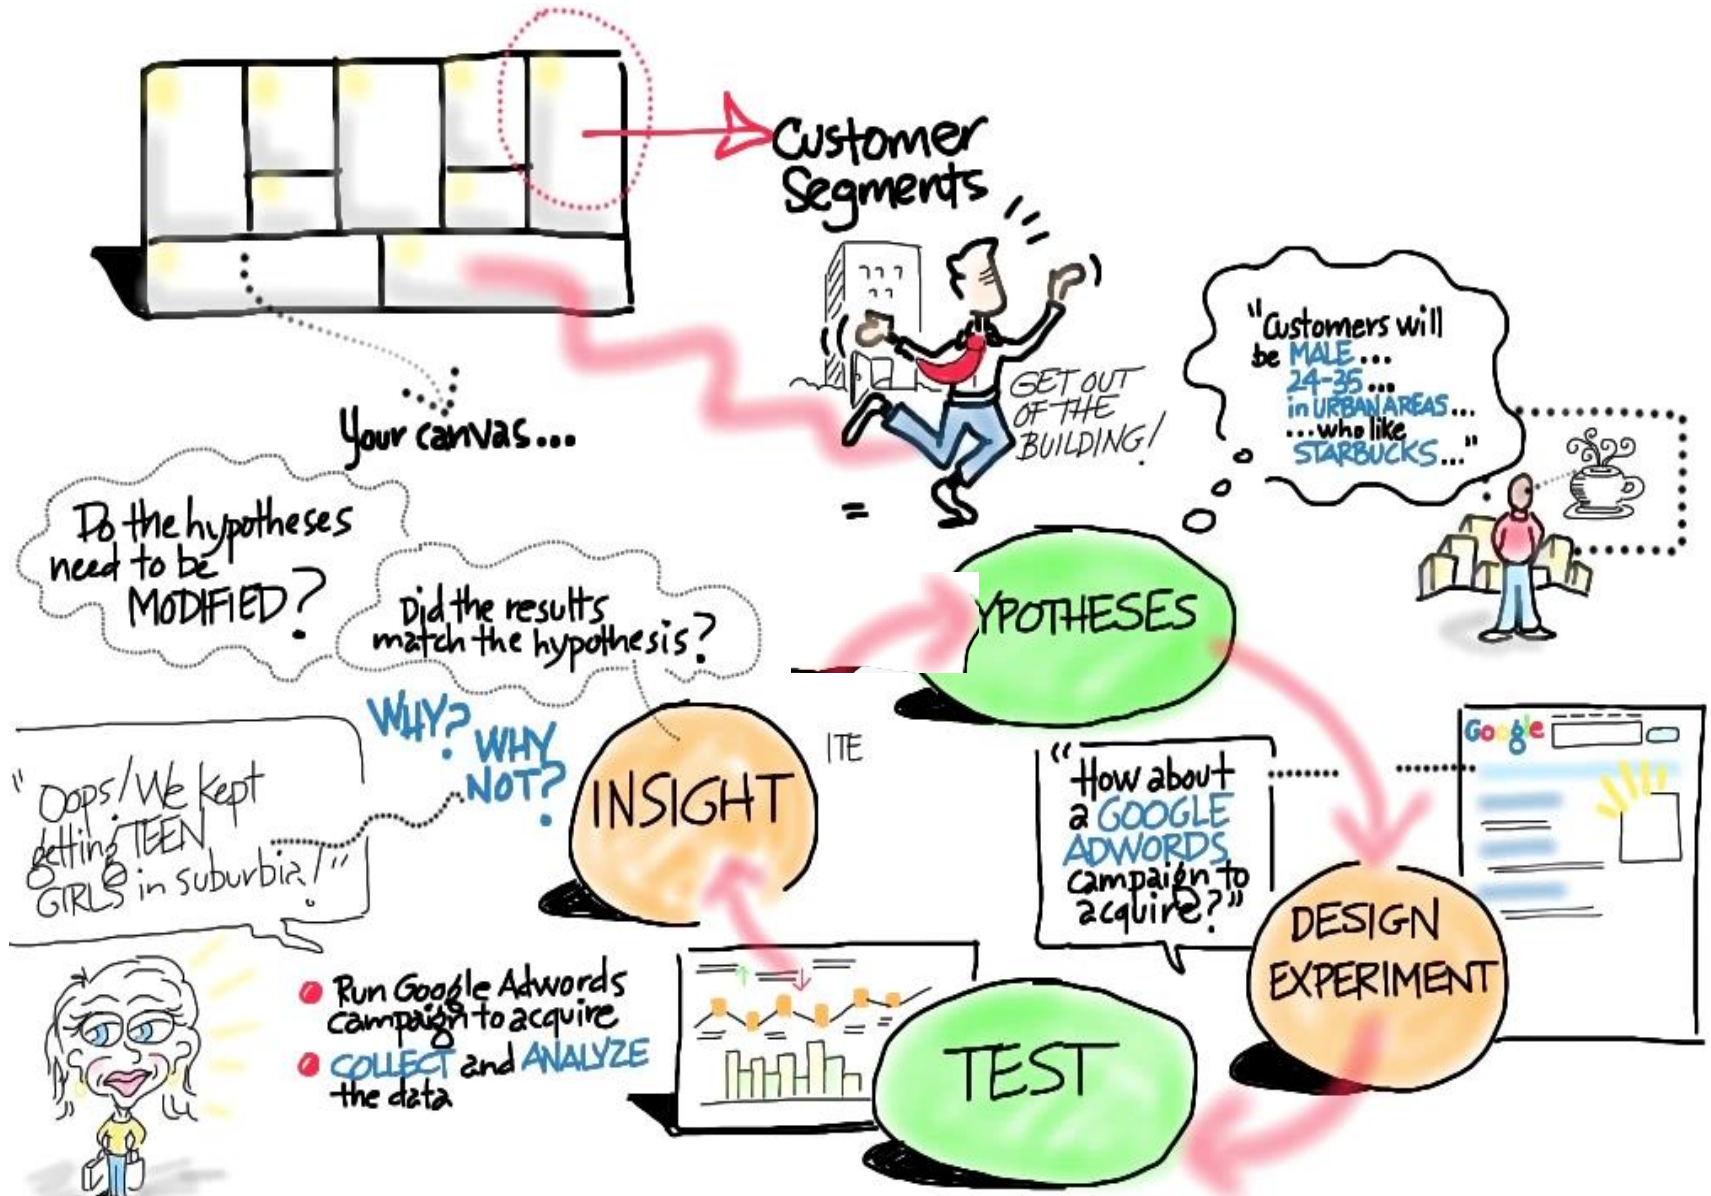 Customer
Segments
GET OUT
OF THE
BUILDING!
"Customers will
be MALE...
24-35...
in URBAN AREAS...
...who like
STARBUCKS..."
Your canvas...
Do the hypotheses
need to be
MODIFIED?
Did the results
match the hypothesis?
YPOTHESES
WHY?
WHY
NOT?
INSIGHT
ITE
"Oops! We kept
getting TEEN
GIRLS in suburbia!"
"How about
a GOOGLE
ADWORDS
campaign to
acquire?"
Google
DESIGN
EXPERIMENT
Run Google Adwords
campaign to acquire
COLLECT and ANALYZE
the data
TEST